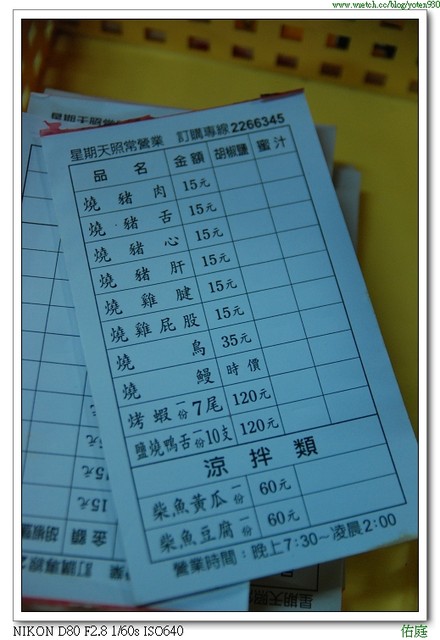 www.wretch.cc/blog/yoten930
星期天照常營業 訂購專線2266345
品名 金額 胡椒鹽 蜜汁
燒豬肉 15元
燒豬舌 15元
燒豬心 15元
燒豬肝 15元
燒雞腱 15元
燒雞屁股 15元
燒鳥 35元
燒鰻 時價
烤蝦一份7尾 120元
鹽燒鴨舌一份10支 120元
涼拌類
柴魚黃瓜一份 60元
柴魚豆腐一份 60元
營業時間：晚上7:30～凌晨2:00
15元
15元
15元
金額 胡椒鹽
訂購專線2
星期天照
NIKON D80 F2.8 1/60s ISO640
佑庭